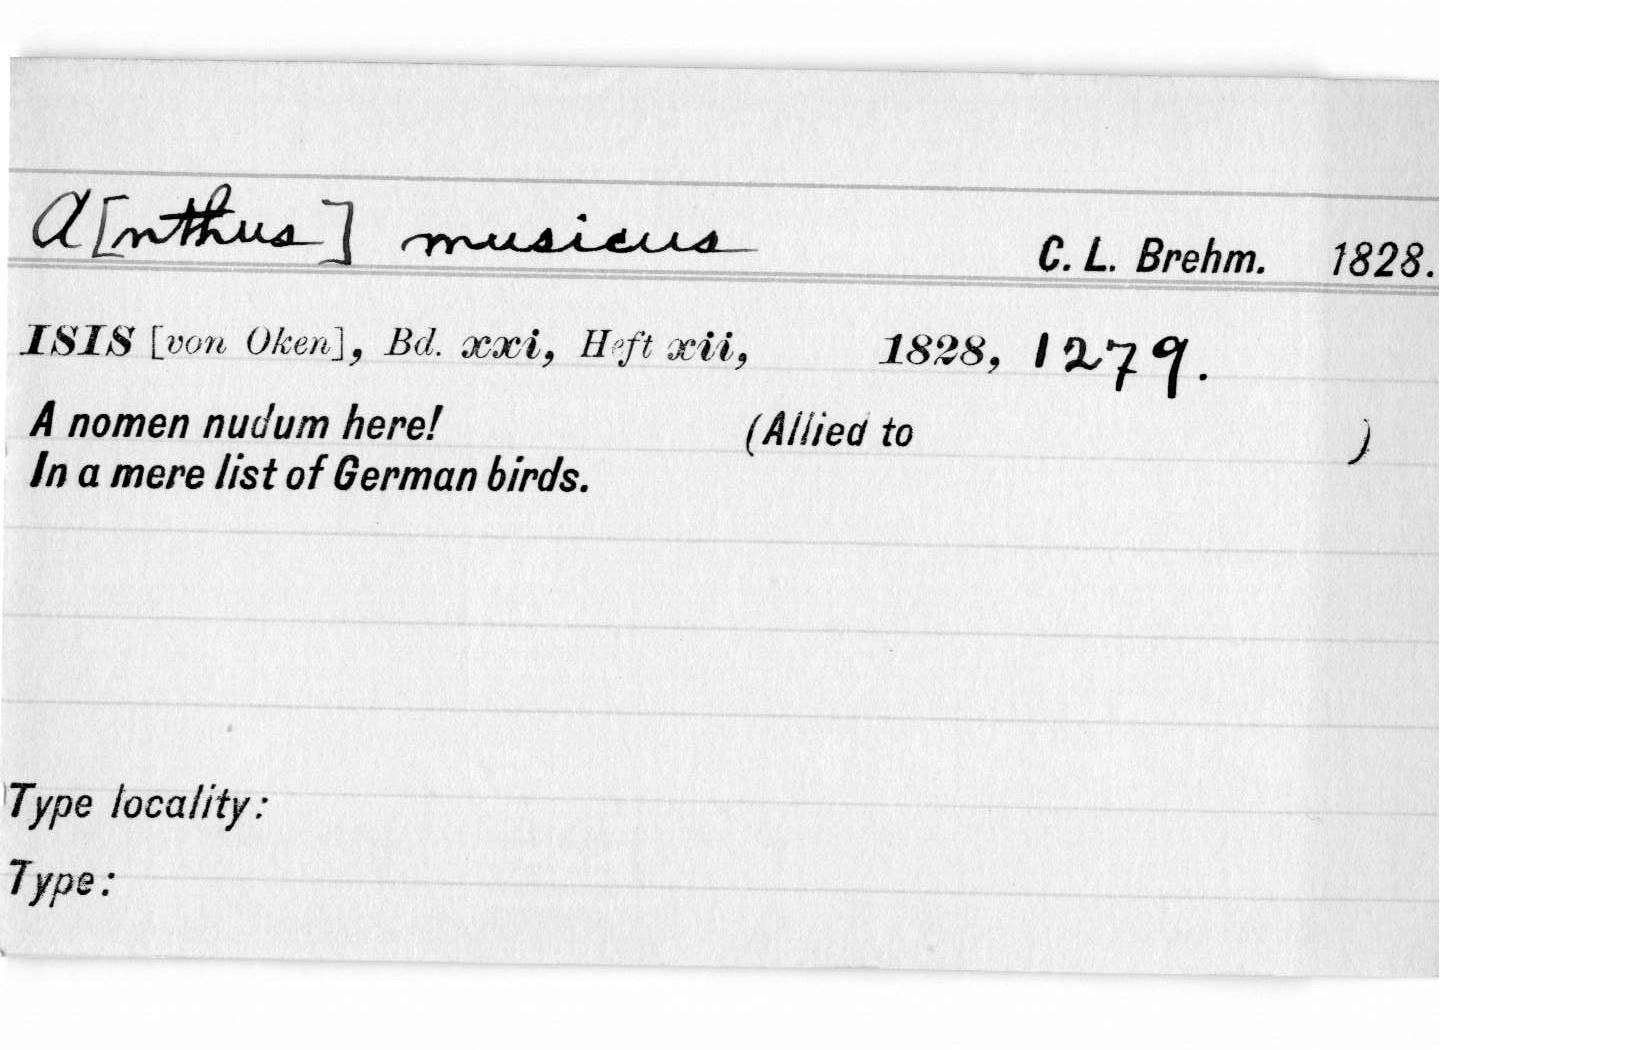 A[nthus] musicus C. L. Brehm. 1828.
ISIS [von Oken], Bd. xxi, Heft xii, 1828, 1279.
A nomen nudum here! (Allied to )
In a mere list of German birds.
Type locality:
Type: